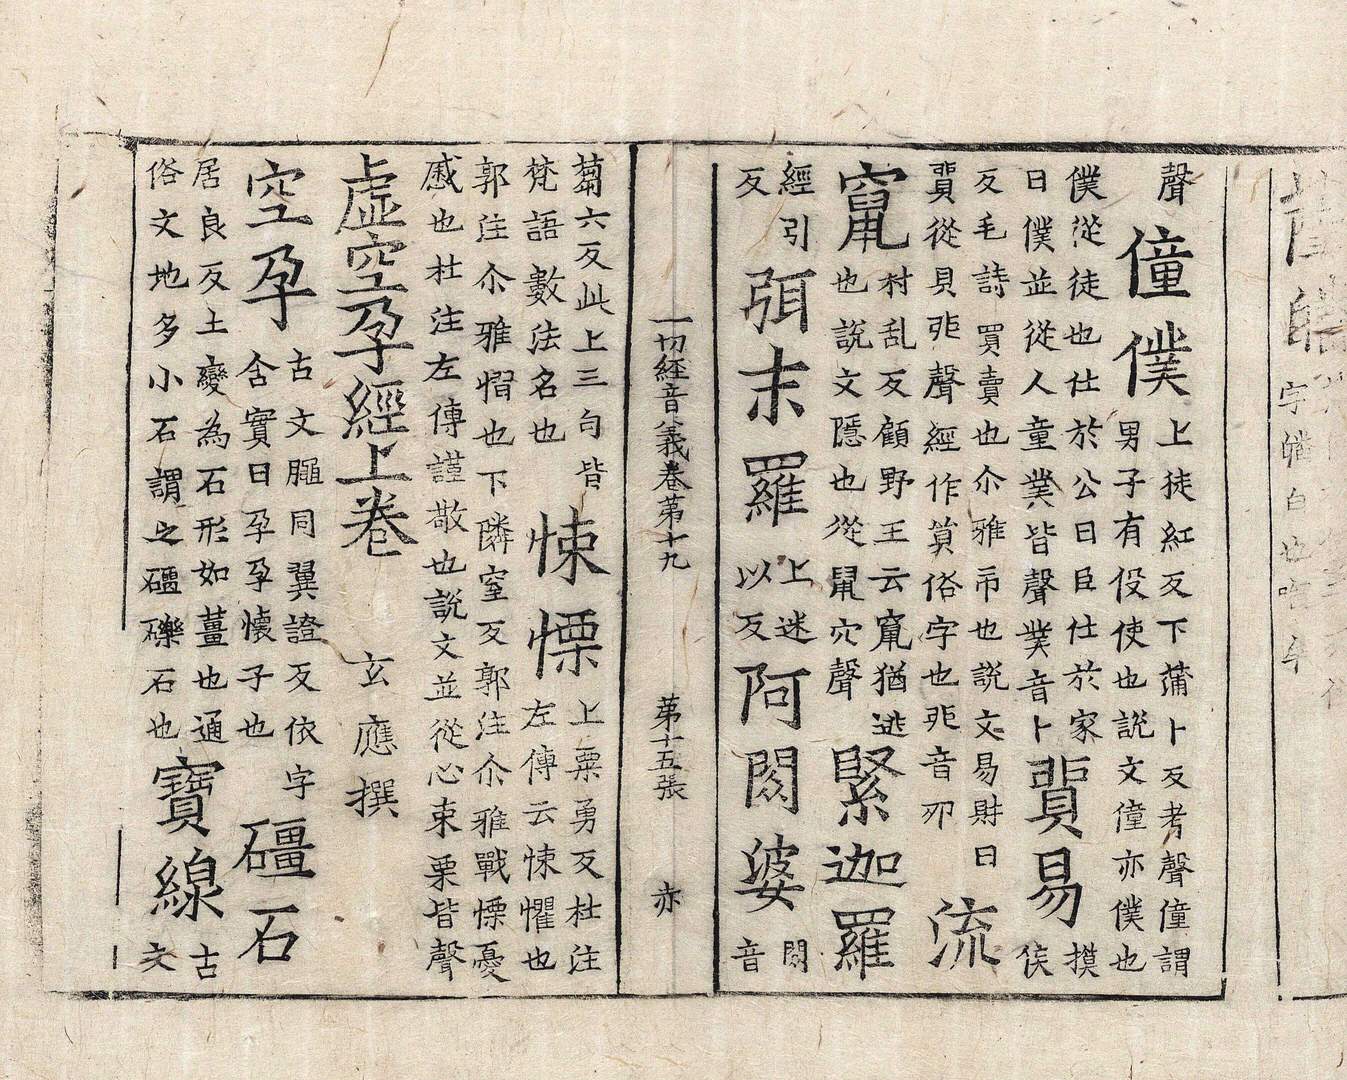 聲僮僕上徒紅反下蒲卜反考聲僮謂
男子有役使也說文僮亦僕也
僕從徒也仕於公曰臣仕於家
曰僕並從人童菐皆聲菐音卜貿易摸
候
反毛詩買賣也尒雅帀也說文易財曰
貿從貝戼聲經作貿俗字也戼音夘流
竄村乱反顧野王云竄猶逃
也說文隱也從鼠穴聲緊迦羅
經引
反弭末羅上迷
以反阿閦婆閦
音
一切經音義卷第十九 第十五張 亦
蒭六反此上三句皆
梵語數法名也悚慄上粟勇反杜注
左傳云悚懼也
郭注尒雅慴也下隣窒反郭注尒雅戰慄憂
慼也杜注左傳謹敬也說文並從心束栗皆聲
虛空孕經上卷 玄應撰
空孕古文同翼證反依字
含實曰孕孕懷子也礓石
居良反土變為石形如薑也通
俗文地多小石謂之礓礫石也寶線古
文